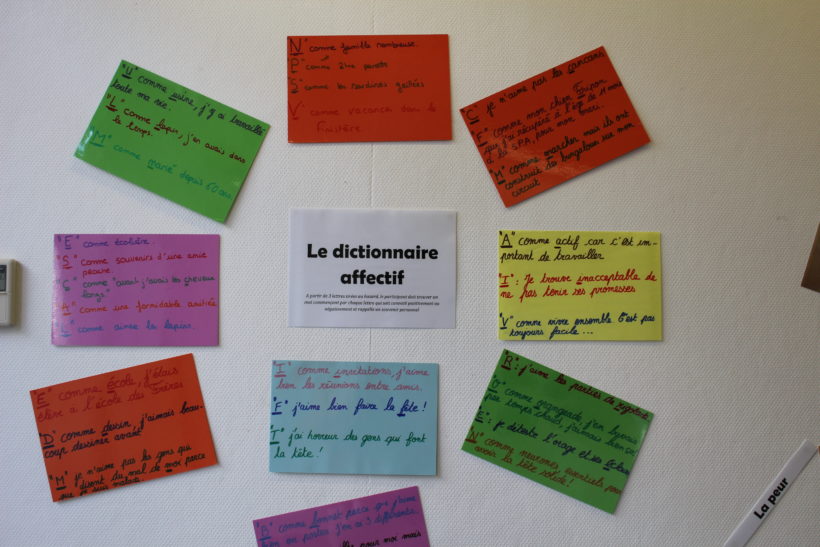 "U" comme usine, j'y ai travaillé
toute ma vie.
"L" comme lapin, j'en avais dans
le temps.
"M" comme marié depuis 60 ans
N" comme famille nombreuse.
P" comme parents
S" comme les sardines grillées
V" comme vacances dans le
Finistère.
"C" je n'aime pas les
"F" comme mon chien
que j'ai récupéré à l'âge de mois
à la SPA, pour mon
"M" comme marcher mais ils ont
construit des bungalows sur mon
circuit
"E" comme écolière.
"S" comme souvenirs d'une amie
"C" comme "avant j'avais les cheveux
longs"
"A" comme une formidable amitié
"L" comme aimer les lapins.
Le dictionnaire
affectif
A partir de 3 lettres tirées au hasard, le participant doit trouver un
mot commençant par chaque lettre qui soit connoté positivement ou
négativement et rappelle un souvenir personnel
"A" comme actif car c'est im-
portant de travailler
"I": Je trouve inacceptable de
ne pas tenir ses promesses
"V" comme vivre ensemble C'est pas
toujours facile ...
"E" comme école, j'étais
élève à l'école des Frères
"D" comme dessin, j'aimais beau-
coup dessiner avant
"M" je n'aime pas les gens qui
disent du mal de moi parce
que je suis malade.
"I" comme invitations, j'aime
bien les réunions entre amis.
"F" j'aime bien faire la fête !
"T" j'ai horreur des gens qui font
la tête !
"R": j'aime les parties de rigolade
"O" comme orangeade, j'en buvais
par temps chaud, j'aimais bien ça!
"E": je déteste l'orage et ses éclairs
"N" comme neurones essentiels pour
avoir la tête solide !
"B" comme bonnet parce que j'aime
bien en porter j'en ai 3 différents.
pour moi mais
La peur